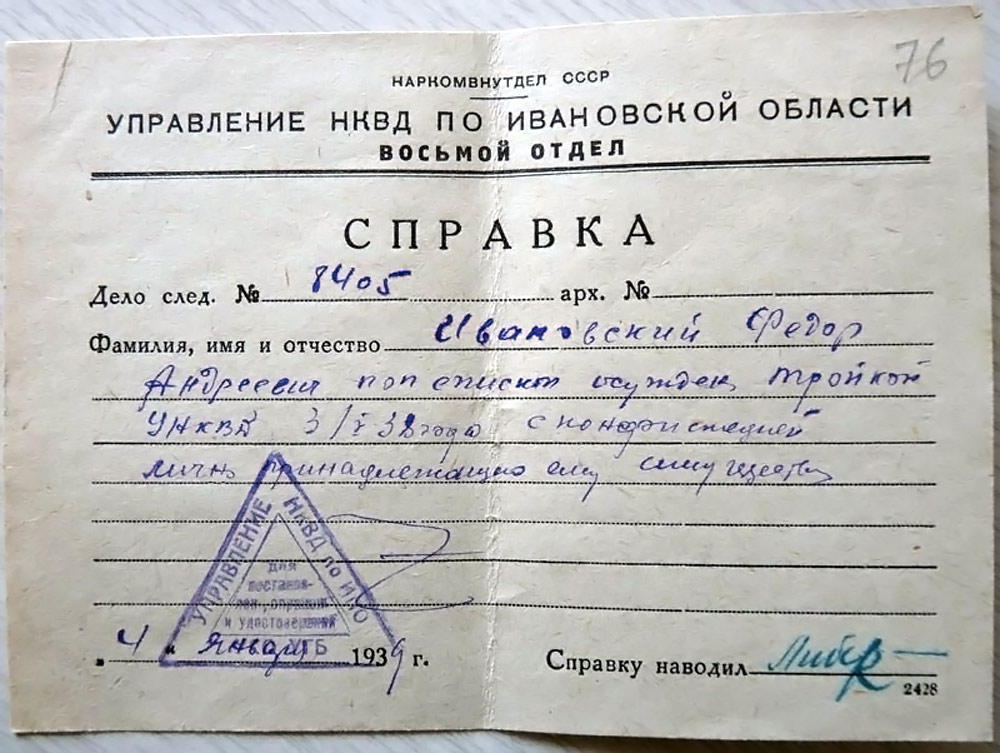 76
НАРКОМВНУТДЕЛ СССР
УПРАВЛЕНИЕ НКВД ПО ИВАНОВСКОЙ ОБЛАСТИ
ВОСЬМОЙ ОТДЕЛ
СПРАВКА
Дело след. № 8405 арх. №
Фамилия, имя и отчество Ивановский Федор
Андреевич поп осужден тройкой
УНКВД 3/I 38 года с конфискацией
лично принадлежащего ему имущества
УПРАВЛЕНИЕ НКВД по ИПО
для
постанов-
лен., справок
и удостоверений
УГБ
„4“ января 1939 г.
Справку наводил Либер
2428